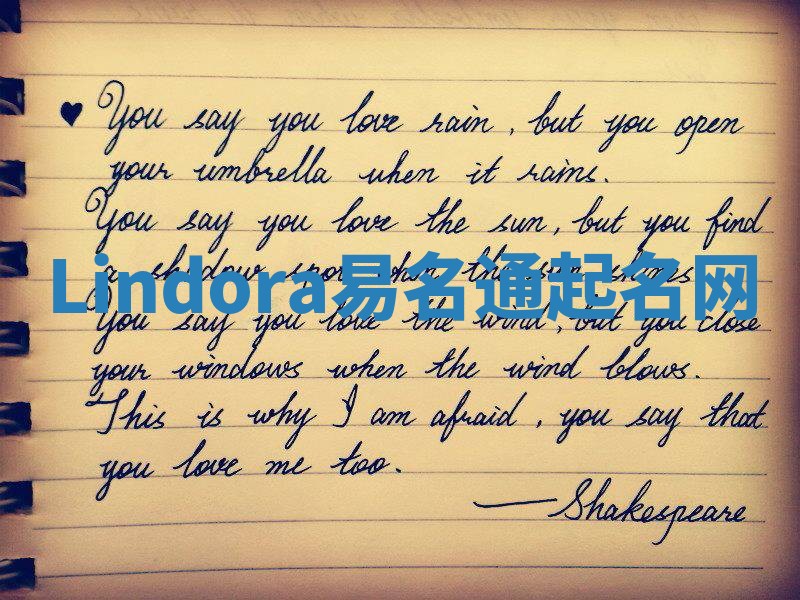 ♥ You say you love rain, but you open
your umbrella when it rains.
You say you love the sun, but you find
a shadow spot when the sun shines
Lindora易名通起名网
You say you love the wind, but you close
your windows when the wind blows.
This is why I am afraid, you say that
you love me too.
—Shakespeare